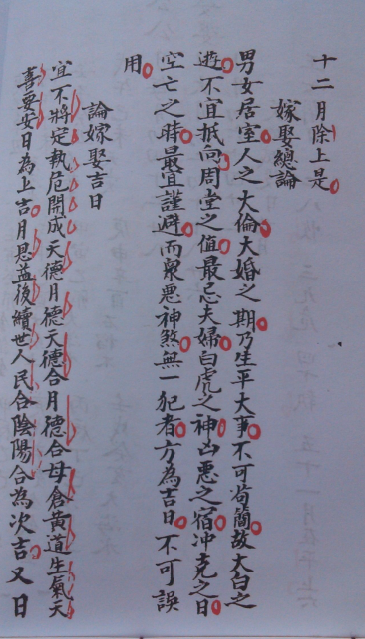 十二月除上是
嫁娶總論
男女居室人之大倫大婚之期乃生平大事不可苟簡故大白之
遊不宜抵向周堂之值最忌夫婦白虎之神凶惡之宿冲克之日
空亡之時最宜謹避而衆惡神煞無一犯者方為吉日不可誤
用
論嫁娶吉日
宜不將定執危開成天德月德天德合月德合母倉黃道生氣天
喜要安日為上吉月恩益後續世人民合陰陽合為次吉又日